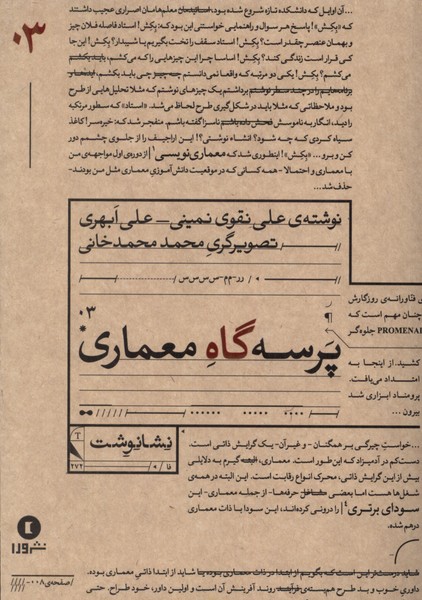 ...آن اوایل که دانشکده تازه شروع شده بود، اساتیدمان معلم‌هامان اصراری عجیب داشتند
۰۳
که «بِکِش»! پاسخ هر سوال و راهنمایی خواستنی این بود که: بِکِش! استاد فاصله فلان چیز
و بهمان عنصر چقدر است؟ بِکِش! استاد سقف را تخت بگیریم یا شیبدار؟ بِکِش! این جا
کی قرار است زندگی کند؟ بِکِش! اما سا چرا این چیزهایی را که می‌کشم، باید بکشم
می‌کشم؟ بِکِش! یکی دو مرتبه که واقعا نمی‌دانستم چه چیز چی باید بکشم،
برنامه‌ایم را در چند سطر نوشتم برداشتم یک چیزهای نوشتم که مثلا تحلیل‌هایی از طرح
بود و ملاحظاتی که مثلا باید در شکل‌گیری طرح لحاظ می‌شد. «استاد» که سطور مرتکبه
را دید، انگار به ناموسش فحش داده باشم ناسزا گفته باشم، منفجر شد که: خیرسر! کاغذ
سیاه کردی که چه شود؟ انشاء نوشتی؟! این اراجیف را از جلوی چشمم دور
کن و برو... «بِکِش»! اینطوری شد که معماری‌نویسی از دوره‌ی اول مواجهه‌ی من
با معماری و احتمالا - همه کسانی که در موقعیت دانش‌آموزیِ معماری مثل من بودند-
حذف شد...
نوشته‌ی علی نقوی نمینی _ علی اَبهری
تصویرگریِ محمد محمدخانی
رر-مم-س س س س س
ی فناورانه‌ی روزگارش
چنان مهم است که
PROMENAD جلوه‌گر
۰۳
پَرسه‌گاهِ معماری
کشید. از اینجا به
امتداد می‌یافت.
پرومناد ابزاری شد
بیرون ...
نشانوشت
T
۲۷۲
فا /
...خواستِ چیرگی بر همگنان - و غیرآن- یک گرایش ذاتی است.
دست‌کم در آدمیزاد که این طور است. معماری، البته گیرم به دلایلی
بیش از این گرایش ذاتی، محرک انواع رقابت است. این البته در همه‌ی
شغل‌ها هست اما بعضی مشاغل حرفه‌ها- از جمله معماری- این
سودای برتری را درونی کرده‌اند، این سودا با ذات معماری
درهم شده.
نشر ورا
شاید درست‌تر این است که بگویم از ابتدا در ذات معماری بوده یا شاید از ابتدا ذاتیِ معماری بوده.
داوریِ خوب و بد طرح هم‌بسته‌ی فرآیند روند آفرینش آن است و اولین داور، خود طراح. حتی
/صفحه‌ی ۰۰۸-/////